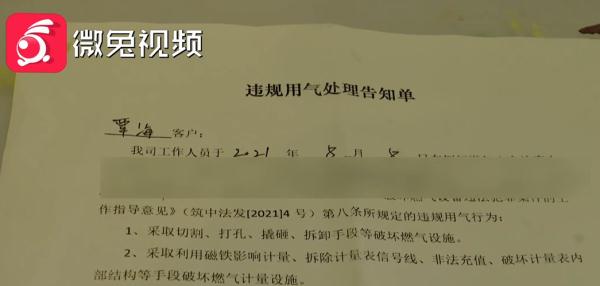 微兔视频
违规用气处理告知单
覃海 客户：
我司工作人员于 2021 年 8 月 8
作指导意见》（筑中法发[2021]4 号）第八条所规定的违规用气行为：
1、采取切割、打孔、撬砸、拆卸手段等破坏燃气设施。
2、采取利用磁铁影响计量、拆除计量表信号线、非法充值、破坏计量表内
部结构等手段破坏燃气计量设施。